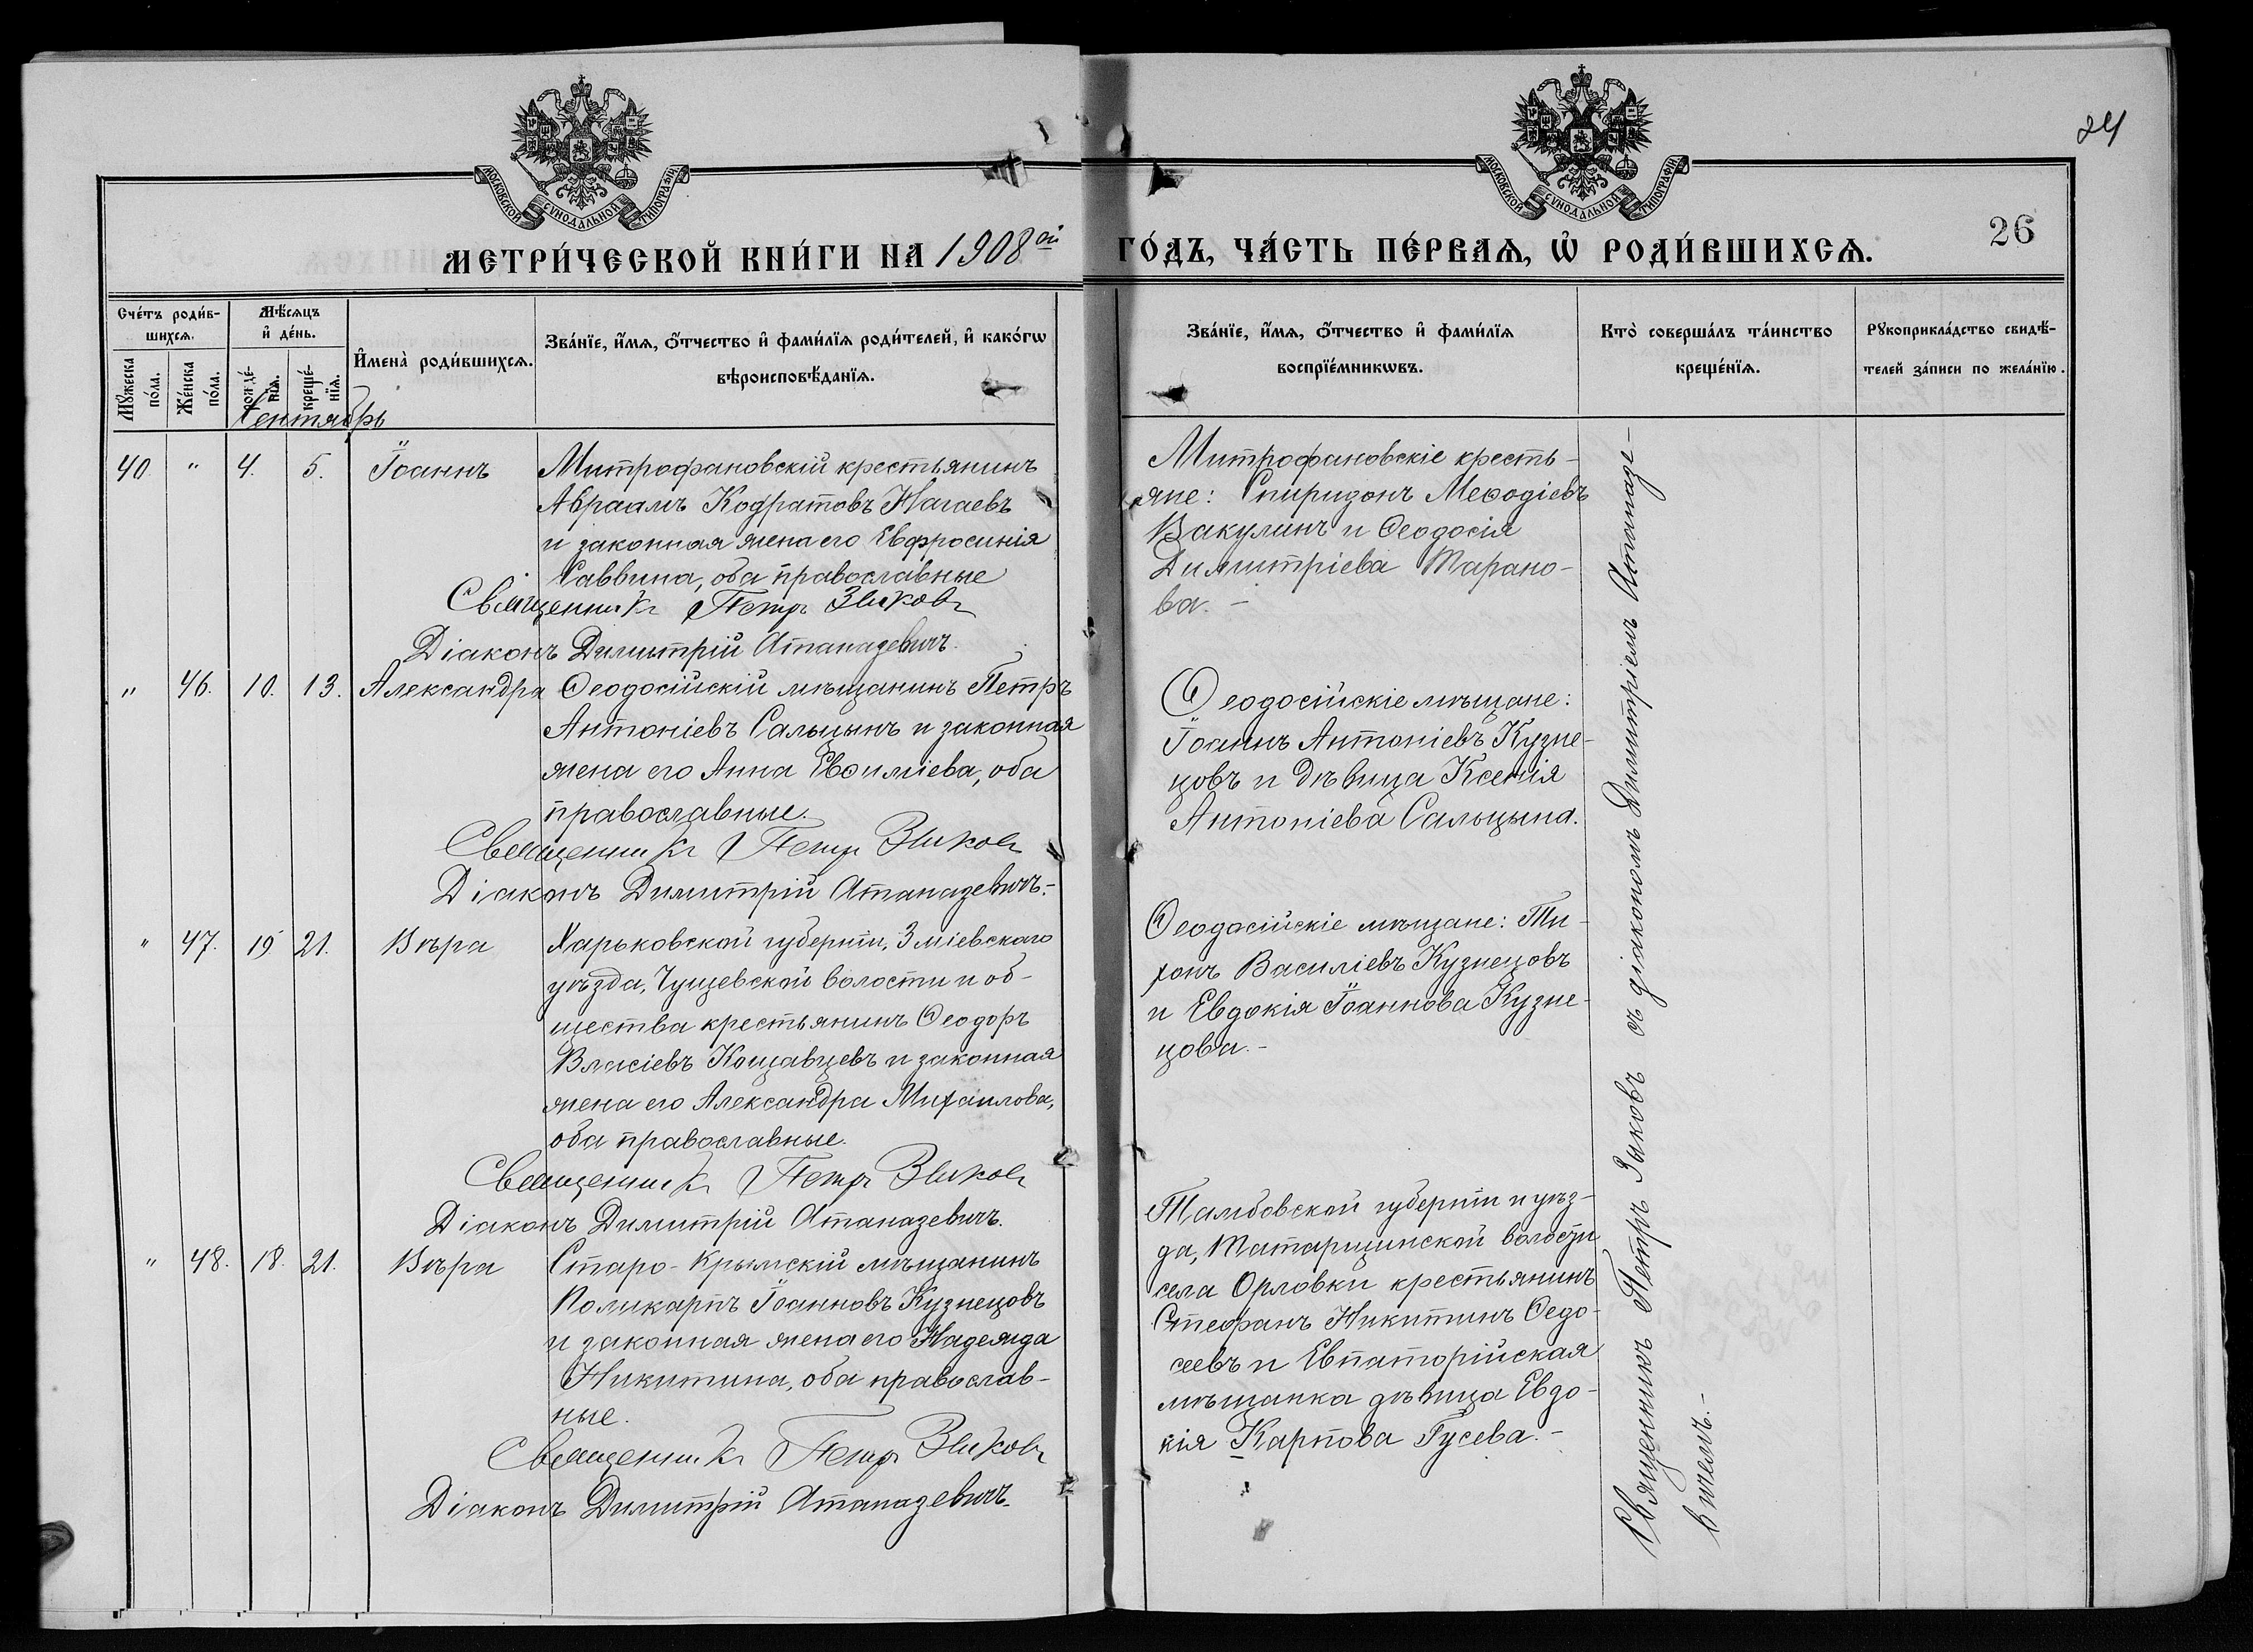 24
26
МОСКОВСКОЙ СѴНОДАЛЬНОЙ ТИПОГРАФІИ
МОСКОВСКОЙ СѴНОДАЛЬНОЙ ТИПОГРАФІИ
МЕТРИ́ЧЕСКОЙ КНИ́ГИ НА 1908ой ГО́ДЪ, ЧА́СТЬ ПЕ́РВАѦ, Ѽ РОДИ́ВШИХСѦ.
Сче́тъ роди́в-
шихсѧ.
Мꙋжеска
по́ла.
Же́нска
по́ла.
Мѣ́сѧцъ
и҆ де́нь.
рожде́-
нїѧ.
креще́-
нїѧ.
И҆мена̀ роди́вшихсѧ.
Зва́нїе, и҆́мѧ, ѻ҆́тчество и҆ фами́лїѧ роди́телей, и҆ како́гѡ
вѣроисповѣ́данїѧ.
Зва́нїе, и҆́мѧ, ѻ҆́тчество и҆ фами́лїѧ
воспрїе́мникѡвъ.
Кто̀ соверша́лъ та́инство
креще́нїѧ.
Рꙋкоприкла́дство свидѣ́-
телей за́писи по жела́нїю.
Сентябрь
40. " 4. 5. Іоаннъ
Митрофановскій крестьянинъ
Авраамъ Кодратовъ Нагаевъ
и законная жена его Евфросинія
Саввина, оба православные
Священникъ Петръ Зыковъ
Діаконъ Димитрій Атаназевичъ.
Митрофановскіе кресть-
яне: Спиридонъ Меѳодіевъ
Вакулинъ и Ѳеодосія
Димитріева Тарано-
ва. -
" 46. 10. 13. Александра
Ѳеодосійскій мѣщанинъ Петръ
Антоніевъ Сальцынъ и законная
жена его Анна Евѳиміева, оба
православные.
Священникъ Петръ Зыковъ
Діаконъ Димитрій Атаназевичъ.-
Ѳеодосійскіе мѣщане:
Іоаннъ Антоніевъ Кузне-
цовъ и дѣвица Ксенія
Антоніева Сальцына.
" 47. 19 21. Вѣра
Харьковской губерніи, Зміевскаго
уѣзда, волости и об-
щества крестьянинъ Ѳеодоръ
Власіевъ и законная
жена его Александра Михаилова,
оба православные.
Священникъ Петръ Зыковъ
Діаконъ Димитрій Атаназевичъ.
Ѳеодосійскіе мѣщане: Ти-
хонъ Василіевъ Кузнецовъ
и Евдокія Іоаннова Кузне-
цова. -
" 48. 18. 21. Вѣра
Старо-Крымскій мѣщанинъ
Поликарпъ Іоанновъ Кузнецовъ
и законная жена его Надежда
Никитина, оба православ-
ные.
Священникъ Петръ Зыковъ
Діаконъ Димитрій Атаназевичъ.
Тамбовской губерніи и уѣз-
да, Татарщинской волости
села Орловки крестьянинъ
Стефанъ Никитинъ Ѳедо-
сеевъ и Евпаторійская
мѣщанка дѣвица Евдо-
кія Карпова Гусева. -
Священникъ Петръ Зыковъ съ діакономъ Димитріемъ Атаназе-
вичемъ. -